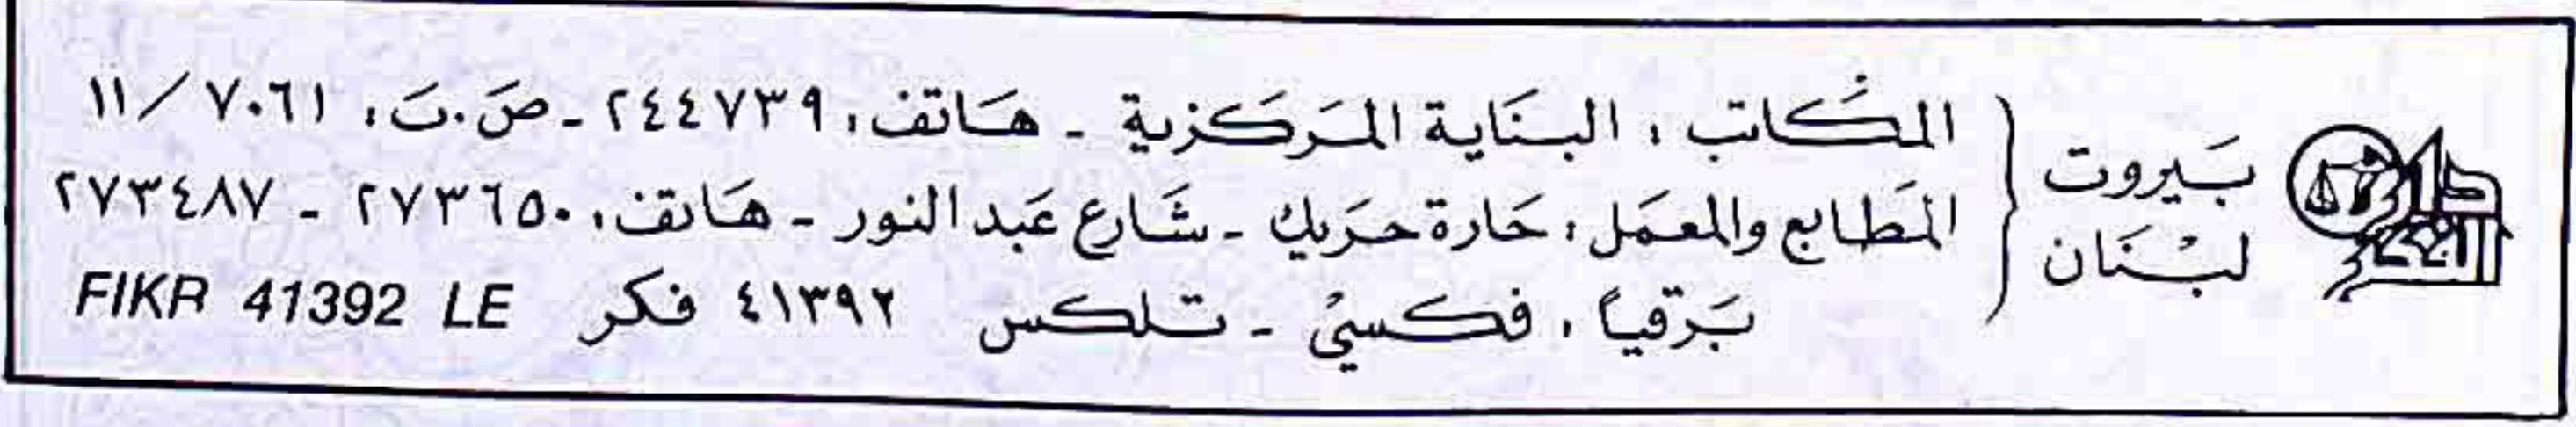 دار الفكر
بَيروت
لبْنَان
المكَاتب: البنَاية المَركَزية - هَاتف: ٢٤٤٧٣٩ - صَ.بَ: ١١/٧٠٦١
المَطابع والمعمَل: حَارة حرَيك - شَارع عَبد النور - هَاتف: ٢٧٣٦٥٠ - ٢٧٣٤٨٧
بَرقياً: فكسيْ - تلكس ٤١٣٩٢ فكر FIKR 41392 LE